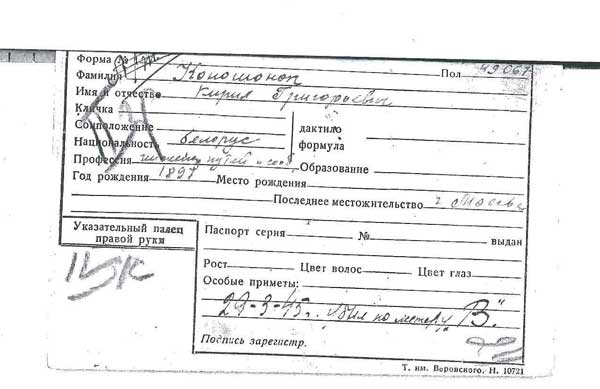 Форма №
Фамилия Коношонок Пол 49067
Имя и отчество Кирил Григорьевич
Кличка
Соцположение дактило
Национальность белорус формула
Профессия инженер путей и сооб. Образование
Год рождения 1897 Место рождения
Последнее местожительство г. Москва
Указательный палец
правой руки
Паспорт серия № выдан
Рост Цвет волос Цвет глаз
Особые приметы:
29-3-45г. по "В"
Подпись зарегистр.
Т. им. Воровского. Н. 10721